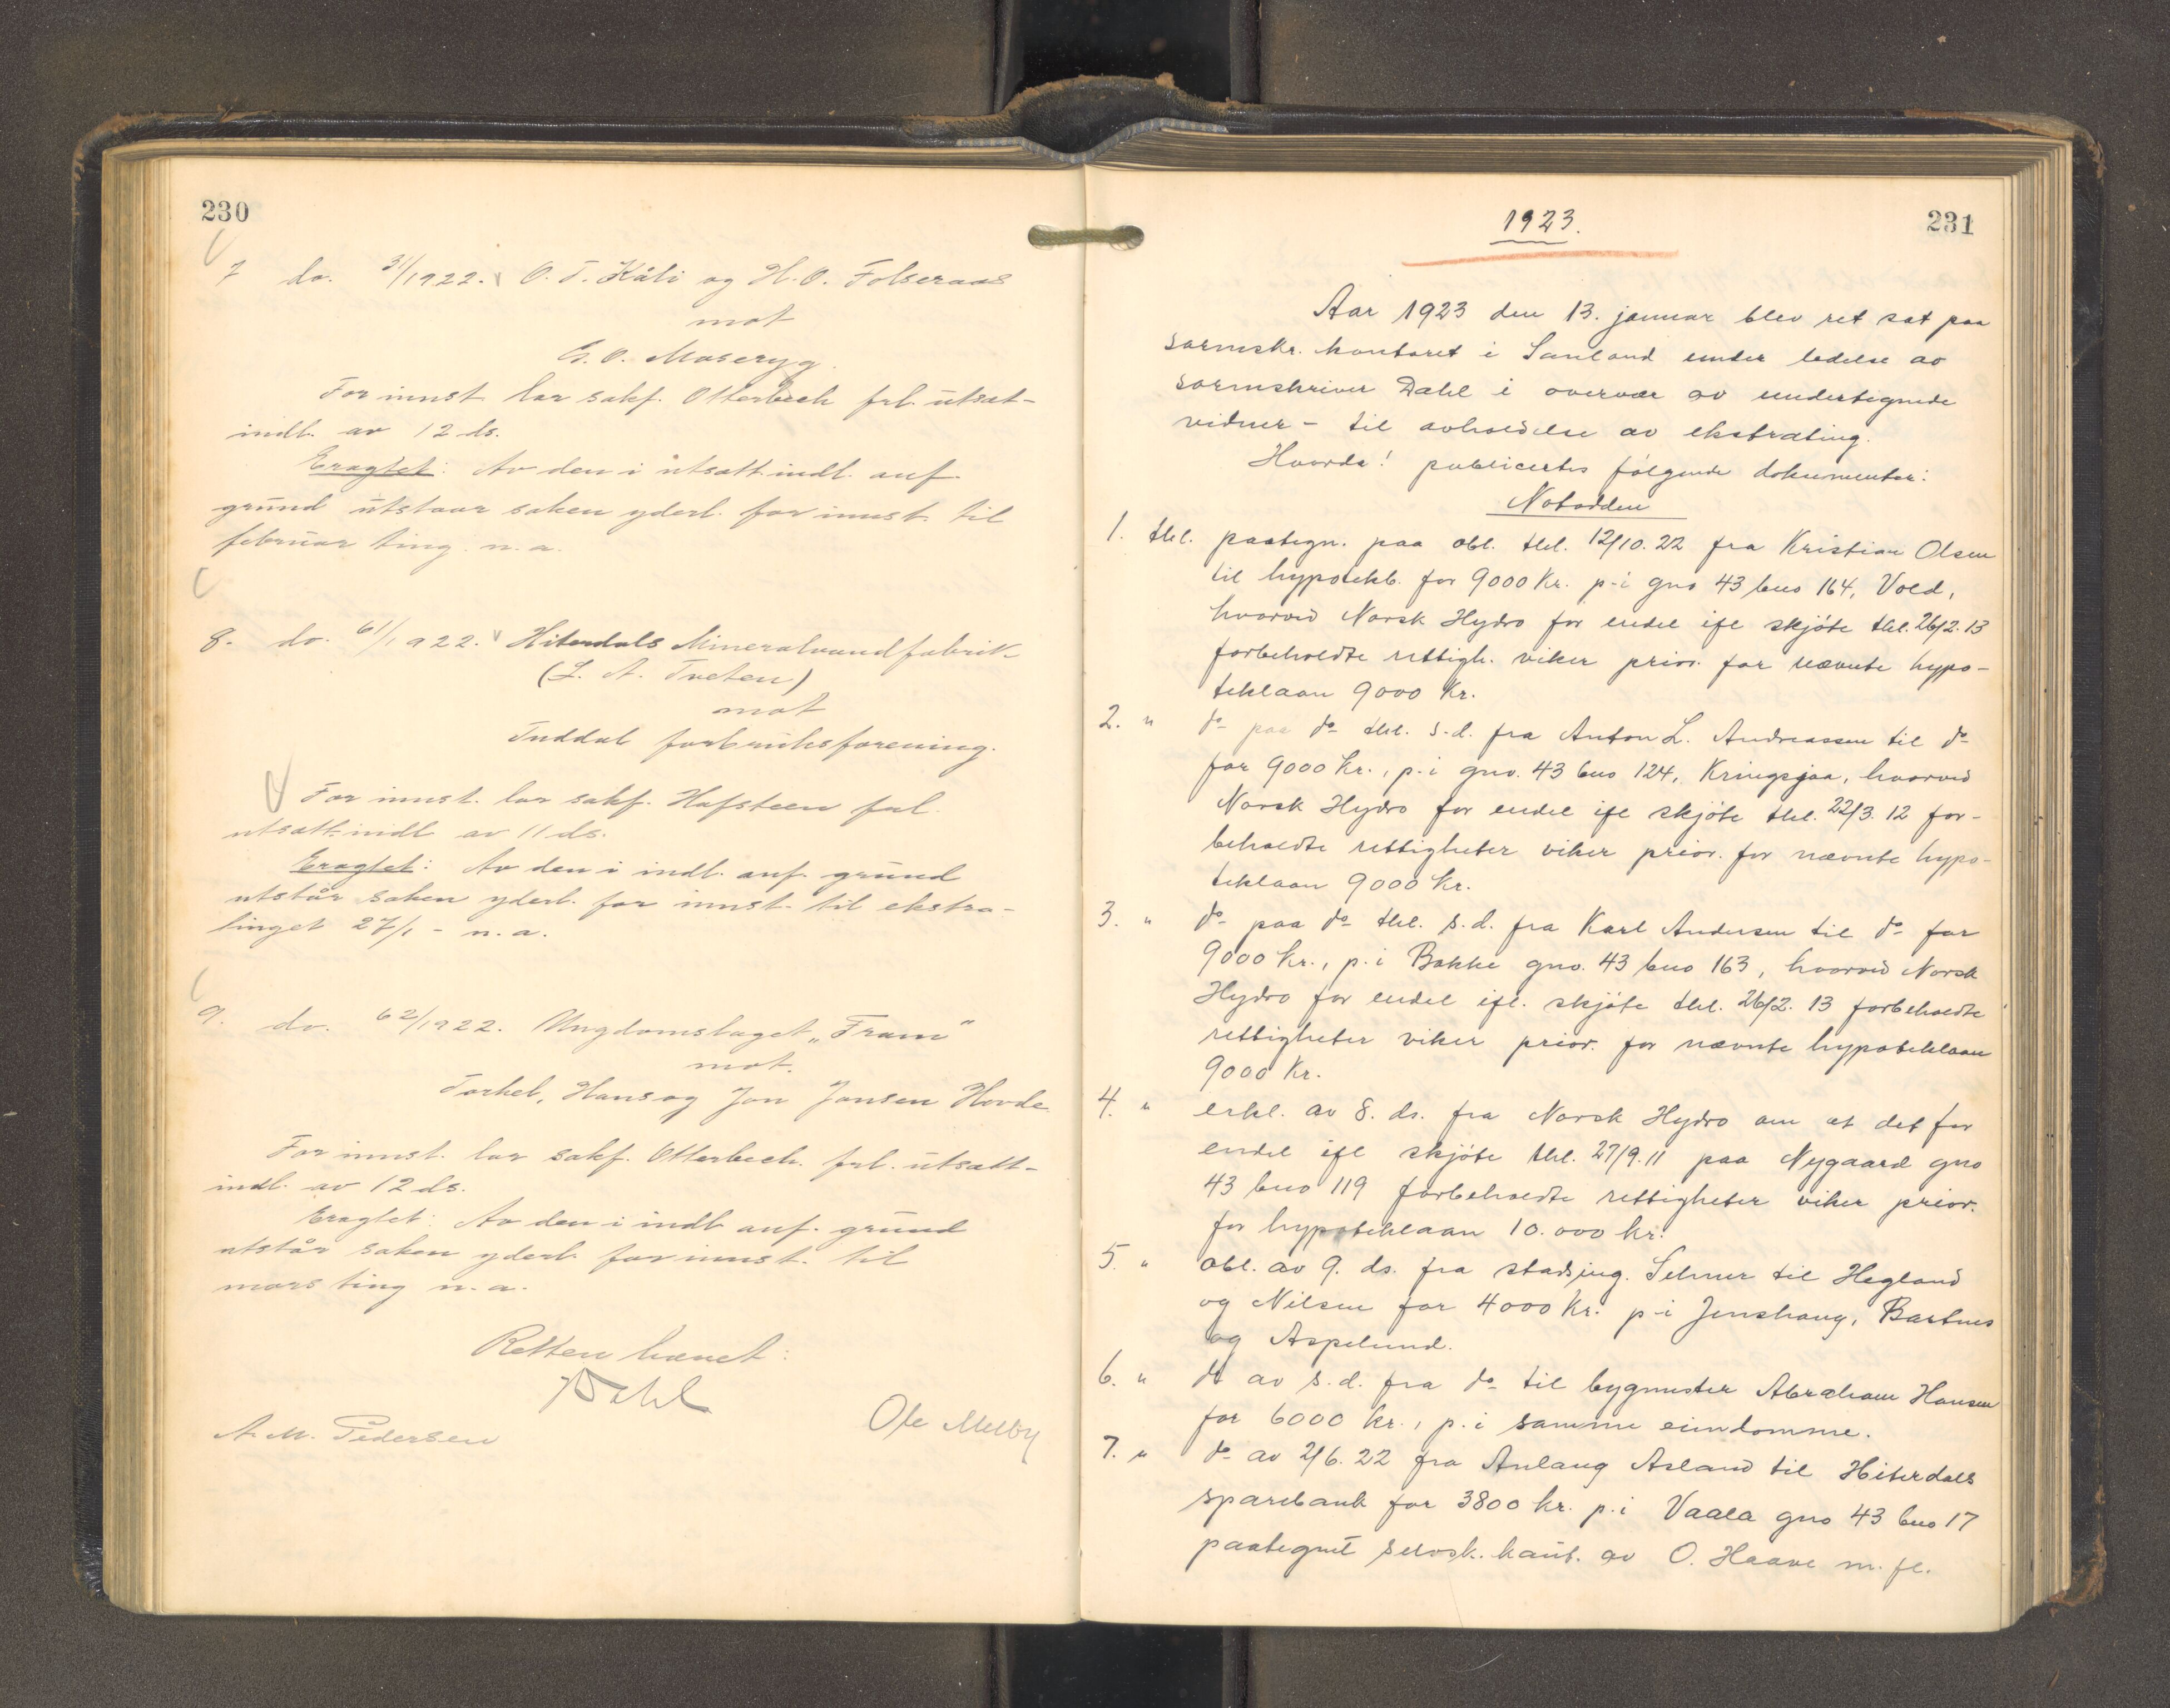 230
7 do. 31/1922. O. T. Kåli og H. O. Folseraas
mot
G. O. Moseryg.
For innst. lar sakf. Otterbech frl. utsat-
indl. av 12 ds.
Eragtet: Av den i utsatt.indl. anf.
grund utstaar saken yderl. for innst. til
februar ting. n. a.
8. do. 61/1922. Hiterdals Mineralvandfabrik
(L. A. Tveten)
mot
Tuddal forbruksforening.
For innst. lar sakf. Hofsteen frl.
utsatt.indl av 11 ds.
Eragtet: Av den i indl. anf. grund
utstår saken yderl. for innst. til ekstra-
tinget 27/1 - n. a.
9. do. 62/1922. Ungdomslaget „Fram"
mot.
Torkel, Hans og Jon Jonsen Hovde
For innst. lar sakf. Otterbech. frl. utsatt-
indl. av 12 ds.
Eragtet: Av den i indl. anf. grund
utstår saken yderl. for innst. til
mars ting n. a.
Retten hævet:
Dahl
A. M. Pedersen
Ole Melby
1923.
231
Aar 1923 den 13. januar blev ret sat paa
sorenskr. kontoret i Sauland under ledelse av
sorenskriver Dahl i overvær av undertegnede
vidner - til avholdelse av ekstrating.
Hvorda! publicertes følgende dokumenter:
Notodden
1. thl. paategn. paa obl. thl. 12/10. 22 fra Kristian Olsen
til hypotekb. for 9000 Kr. p. i gno 43 bno 164, Vold,
hvorved Norsk Hydro for endel ifl skjöte thl. 26/2. 13
forbeholdte rettigh. viker prior. for nævnte hypo-
teklaan 9000 Kr.
2. " do paa do thl. s. d. fra Anton L. Andreassen til do
for 9000 kr., p. i gno. 43 bno 124, Kringsjaa, hvorved
Norsk Hydro for endel ifl skjöte thl. 22/3. 12 for-
beholdte rettigheter viker prior. for nævnte hypo-
teklaan 9000 kr.
3. " do paa do thl. s. d. fra Karl Andersen til do for
9000 kr., p. i Bakke gno. 43 bno 163, hvorved Norsk
Hydro for endel ifl. skjöte thl. 26/2. 13 forbeholdte
rettigheter viker prior. for nævnte hypoteklaan
9000 kr.
4. " erkl. av 8. ds. fra Norsk Hydro om at det for
endel ifl skjöte thl. 27/9. 11 paa Nygaard gno
43 bno 119 forbeholdte rettigheter viker prior.
for hypoteklaan 10.000 kr.
5. " obl. av 9. ds. fra stadsing. Selmer til Hegland
og Nilsen for 4000 Kr. p. i Jenshaug, Bartnes
og Aspelund.
6. " do av s. d. fra do til bygmester Abraham Hansen
for 6000 kr., p. i samme eiendomme.
7. " do av 2/6. 22 fra Anlaug Asland til Hiterdals
sparebank for 3800 kr. p. i Vaala gno 43 bno 17
paategnet selvsk.kaut. av O. Haave m. fl.